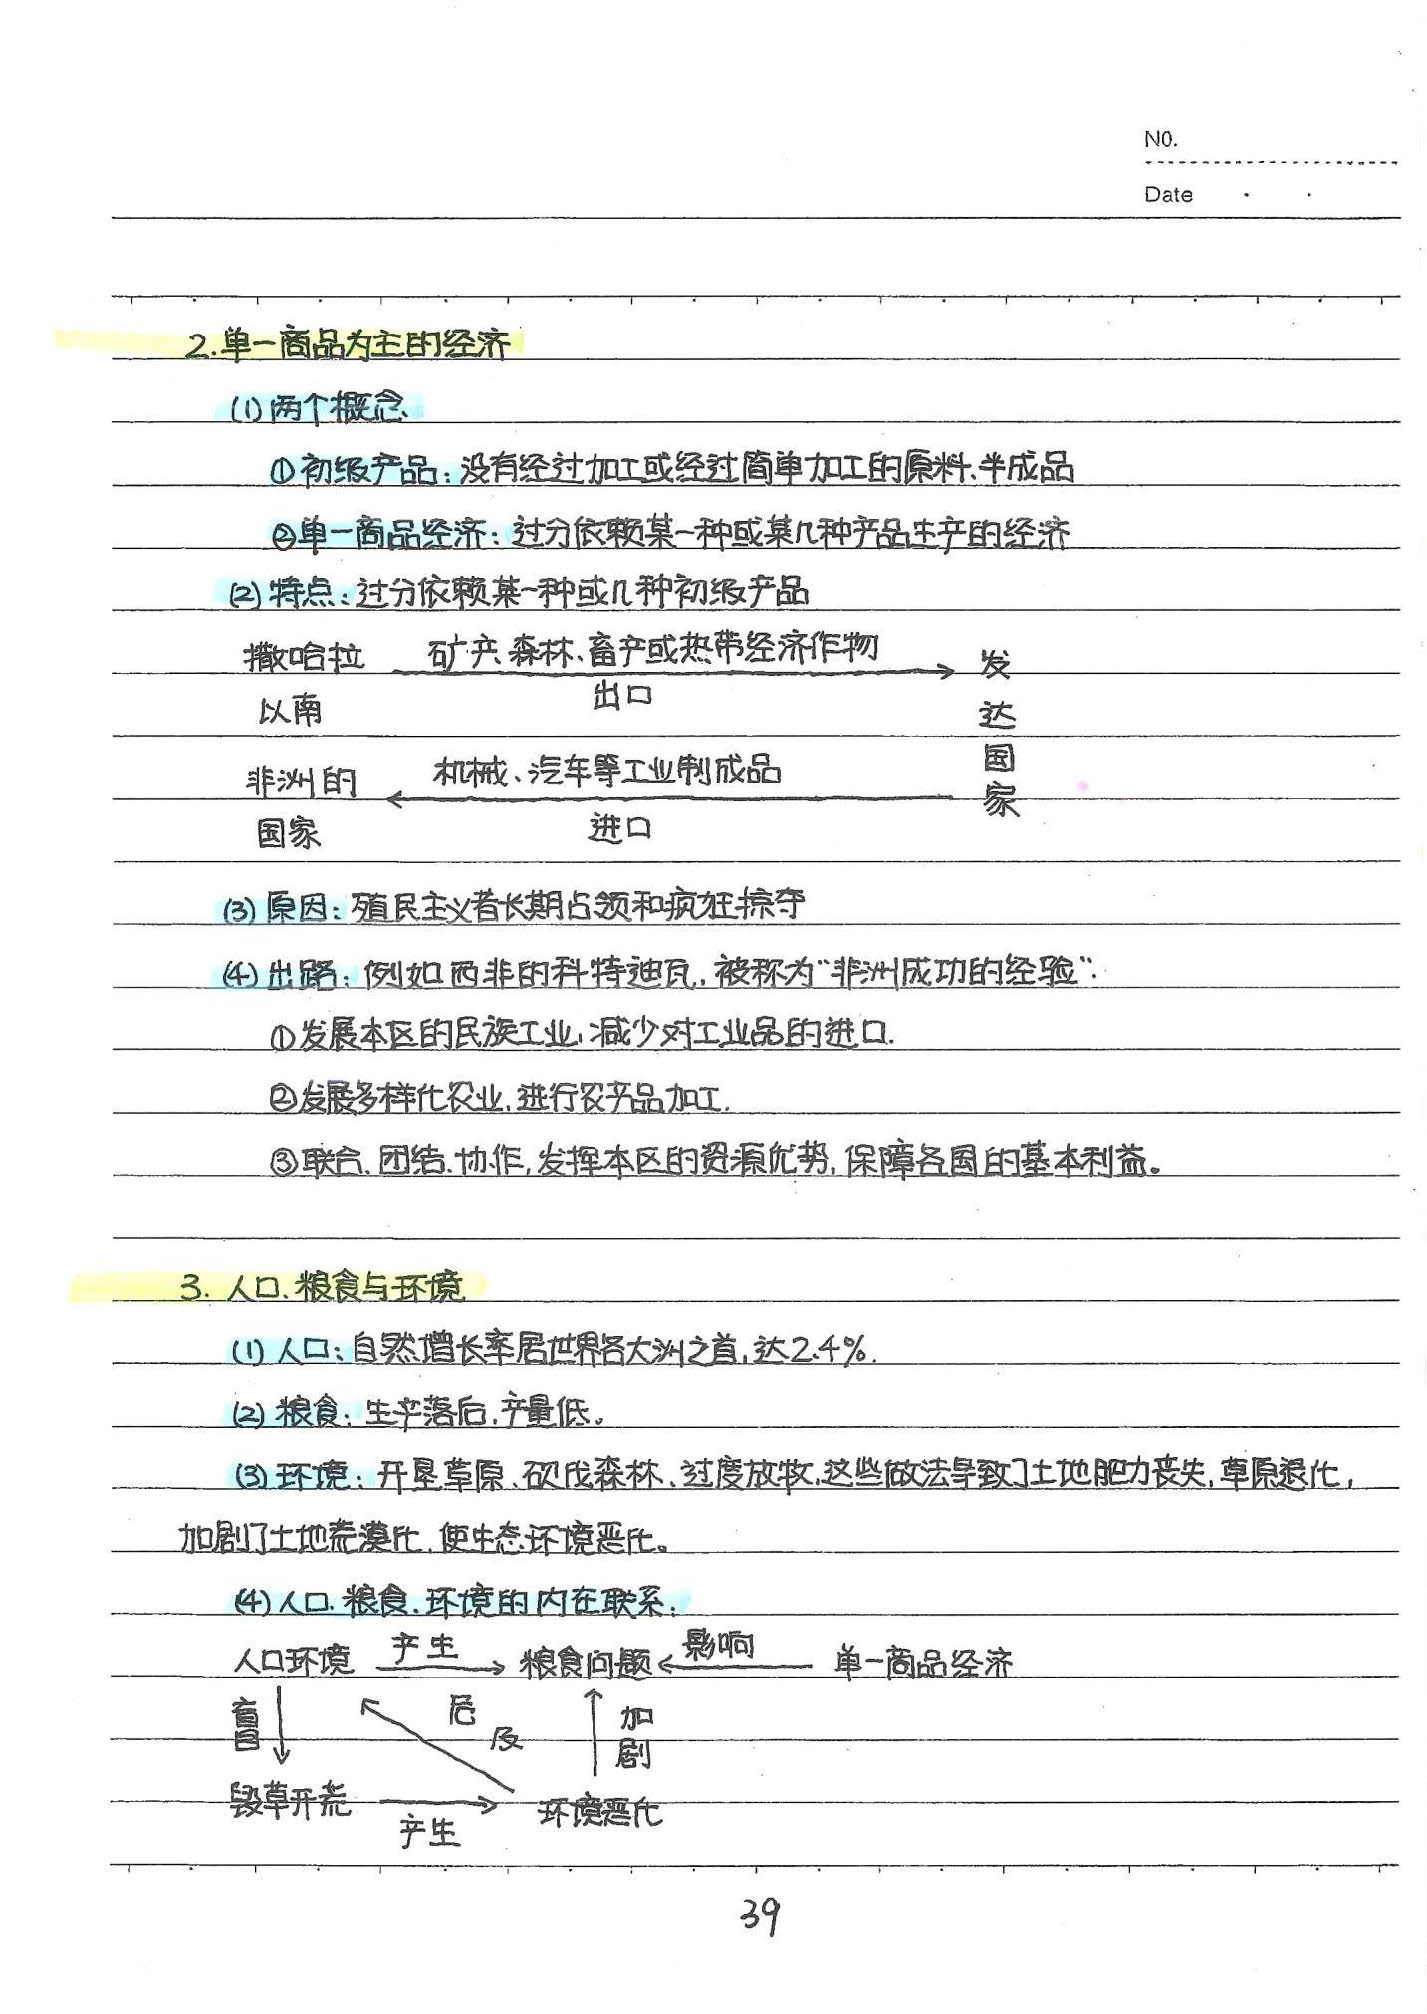 NO.
Date
2.单一商品为主的经济
(1)两个概念
①初级产品:没有经过加工或经过简单加工的原料、半成品
②单一商品经济:过分依赖某一种或某几种产品生产的经济
(2)特点:过分依赖某一种或几种初级产品
撒哈拉 矿产、森林、畜产或热带经济作物 发
以南 出口 达
非洲的 机械、汽车等工业制成品 国
国家 进口 家
(3)原因:殖民主义者长期占领和疯狂掠夺
(4)出路:例如西非的科特迪瓦,被称为“非洲成功的经验”.
①发展本区的民族工业,减少对工业品的进口.
②发展多样化农业,进行农产品加工.
③联合、团结、协作,发挥本区的资源优势,保障各国的基本利益。
3. 人口、粮食与环境
(1)人口:自然增长率居世界各大洲之首,达2.4%.
(2)粮食:生产落后,产量低。
(3)环境:开垦草原、砍伐森林、过度放牧,这些做法导致了土地肥力丧失,草原退化,
加剧了土地荒漠化,使生态环境恶化。
(4)人口、粮食、环境的内在联系:
人口环境 产生 粮食问题 影响 单一商品经济
盲目 危及 加剧
毁草开荒 产生 环境恶化
39